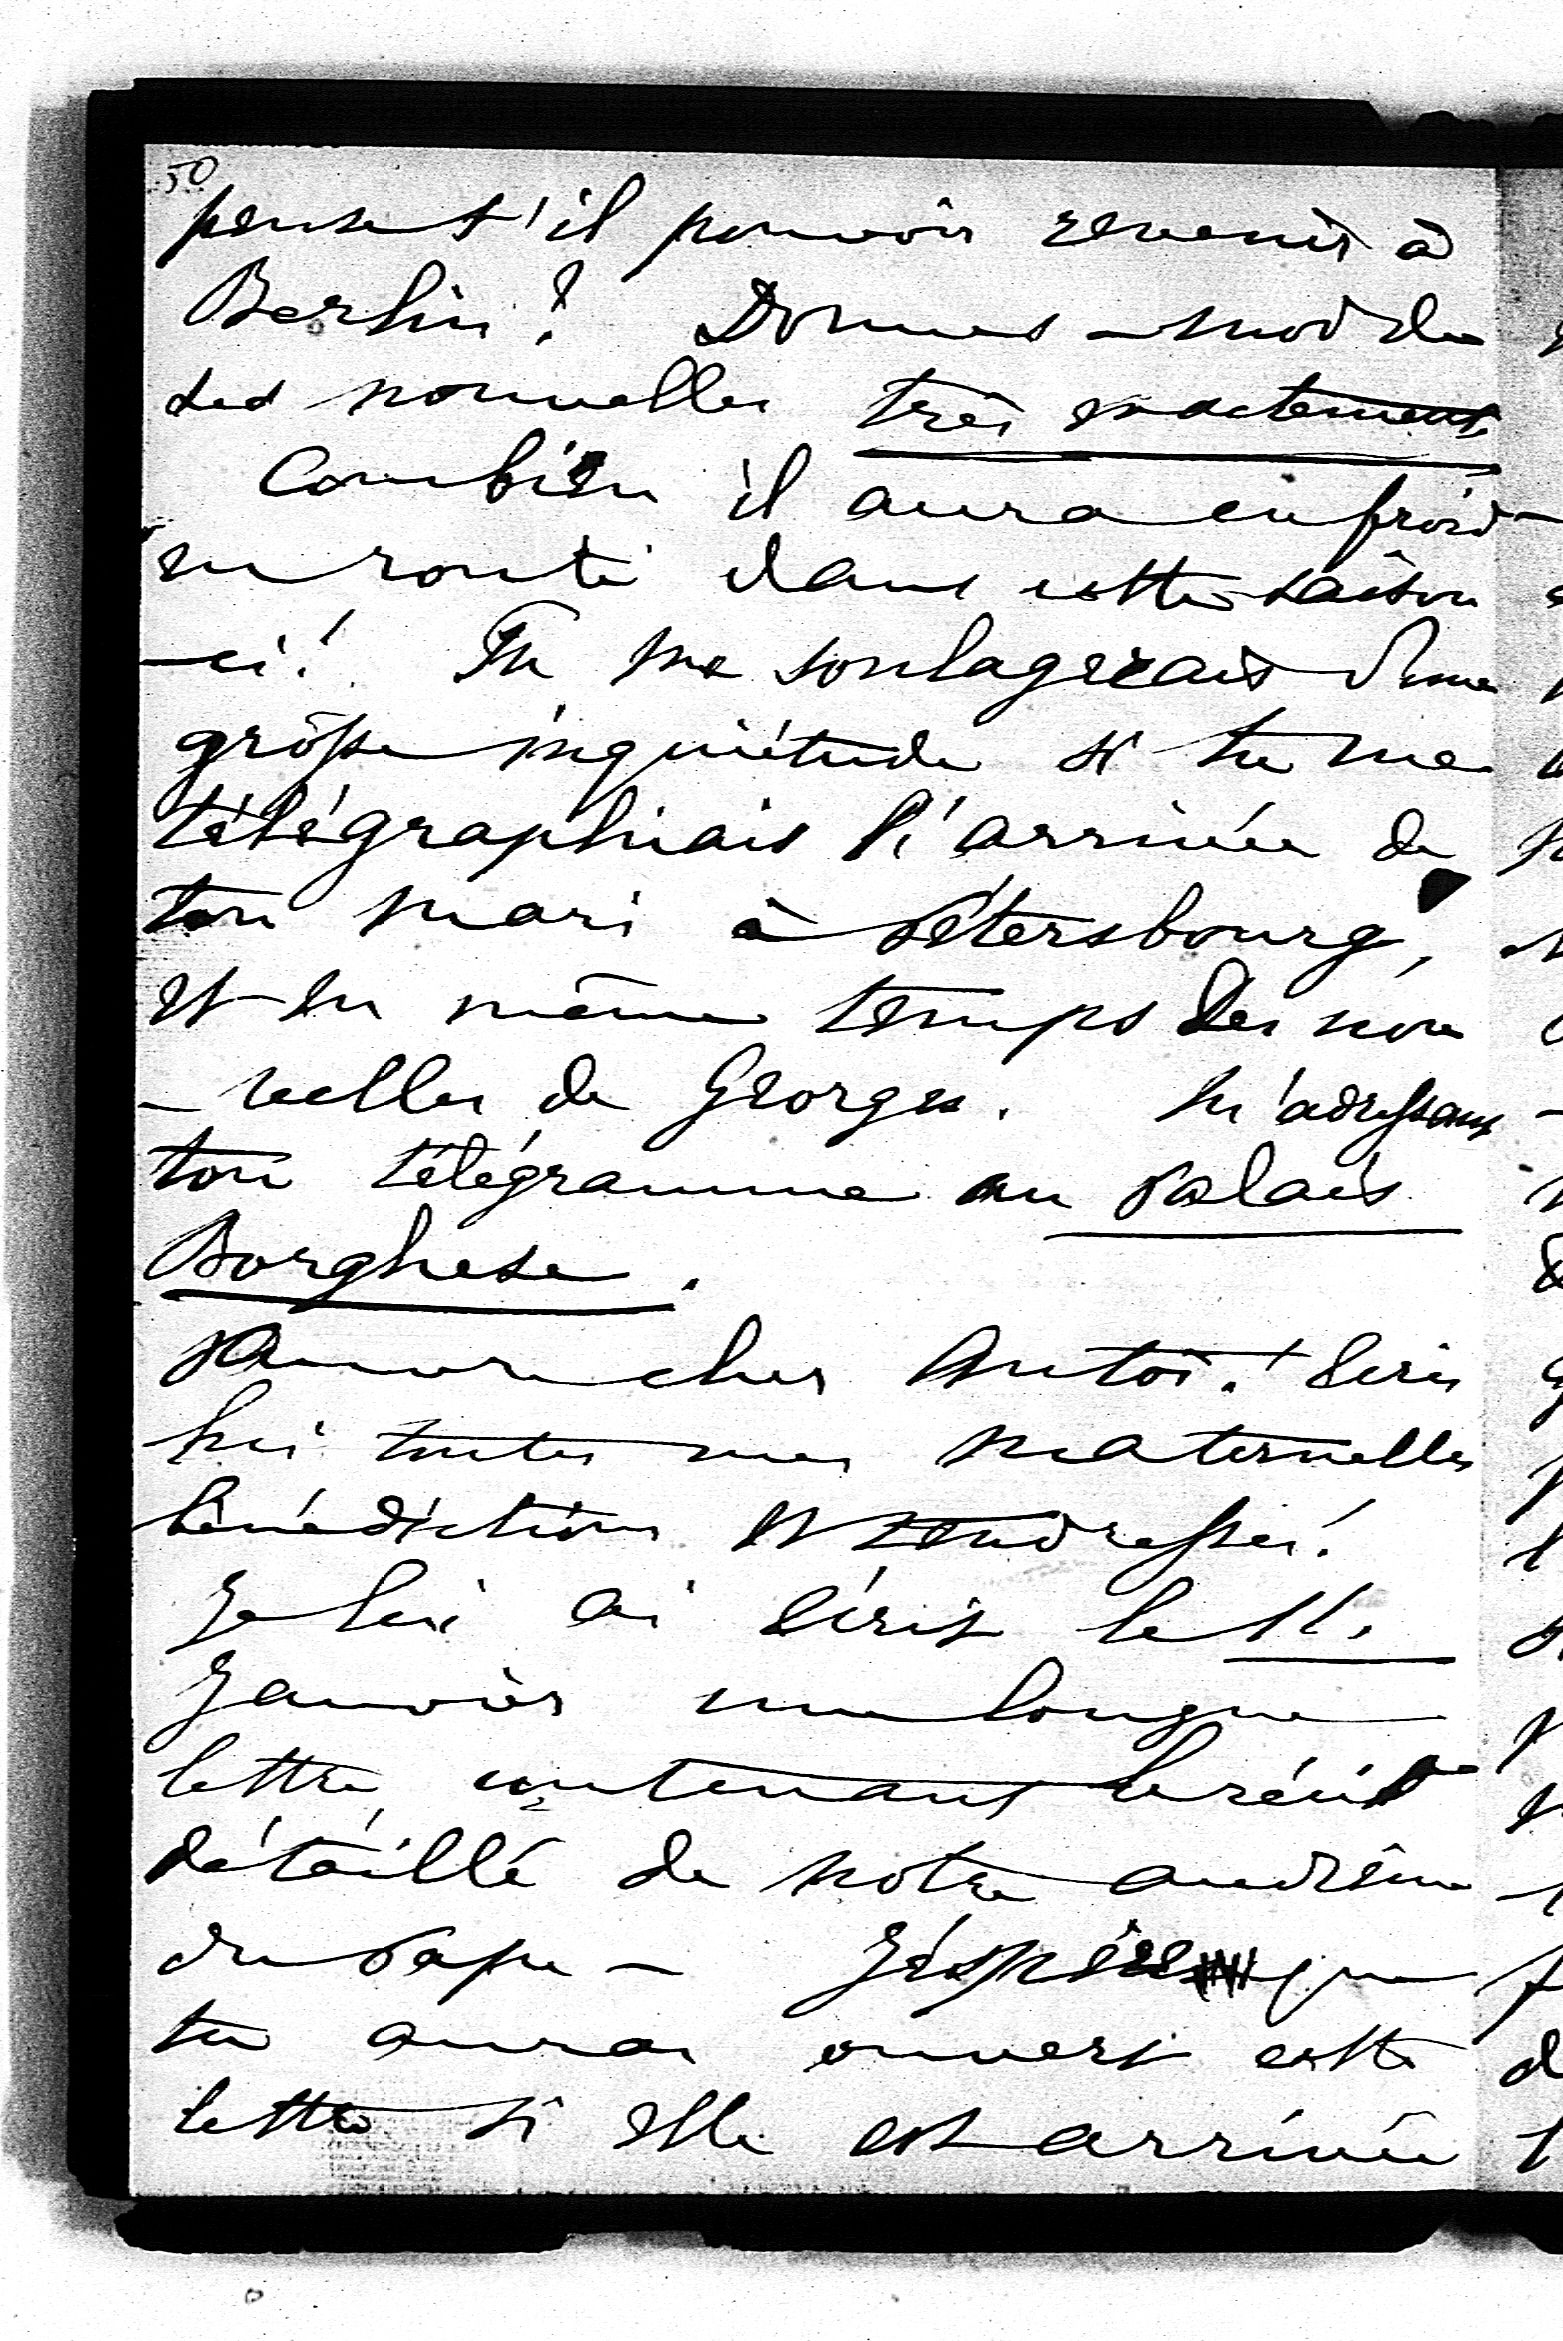 50
pense t'il pouvoir revenir à
Berlin? Donnes-moi de
ses nouvelles très exactement.
Combien il aura eu froid
en route dans cette saison
-ci! Tu me soulagerais d'une
große inquiétude si tu me
télégraphiais l'arrivée de
ton mari à Pétersbourg,
et en même temps des nou
-velles de Georges. En m'adressant
ton télégramme au Palais
Borghese.
Pauvre cher Antoi! Ecris
lui toutes mes maternelles
bénédictions et tendresses!
Je lui ai écrit le 11.
Janvier une longue
lettre contenant le récit
détaillé de notre audience
du Pape – J'éspère que
tu auras ouvert cette
lettre si elle est arrivée